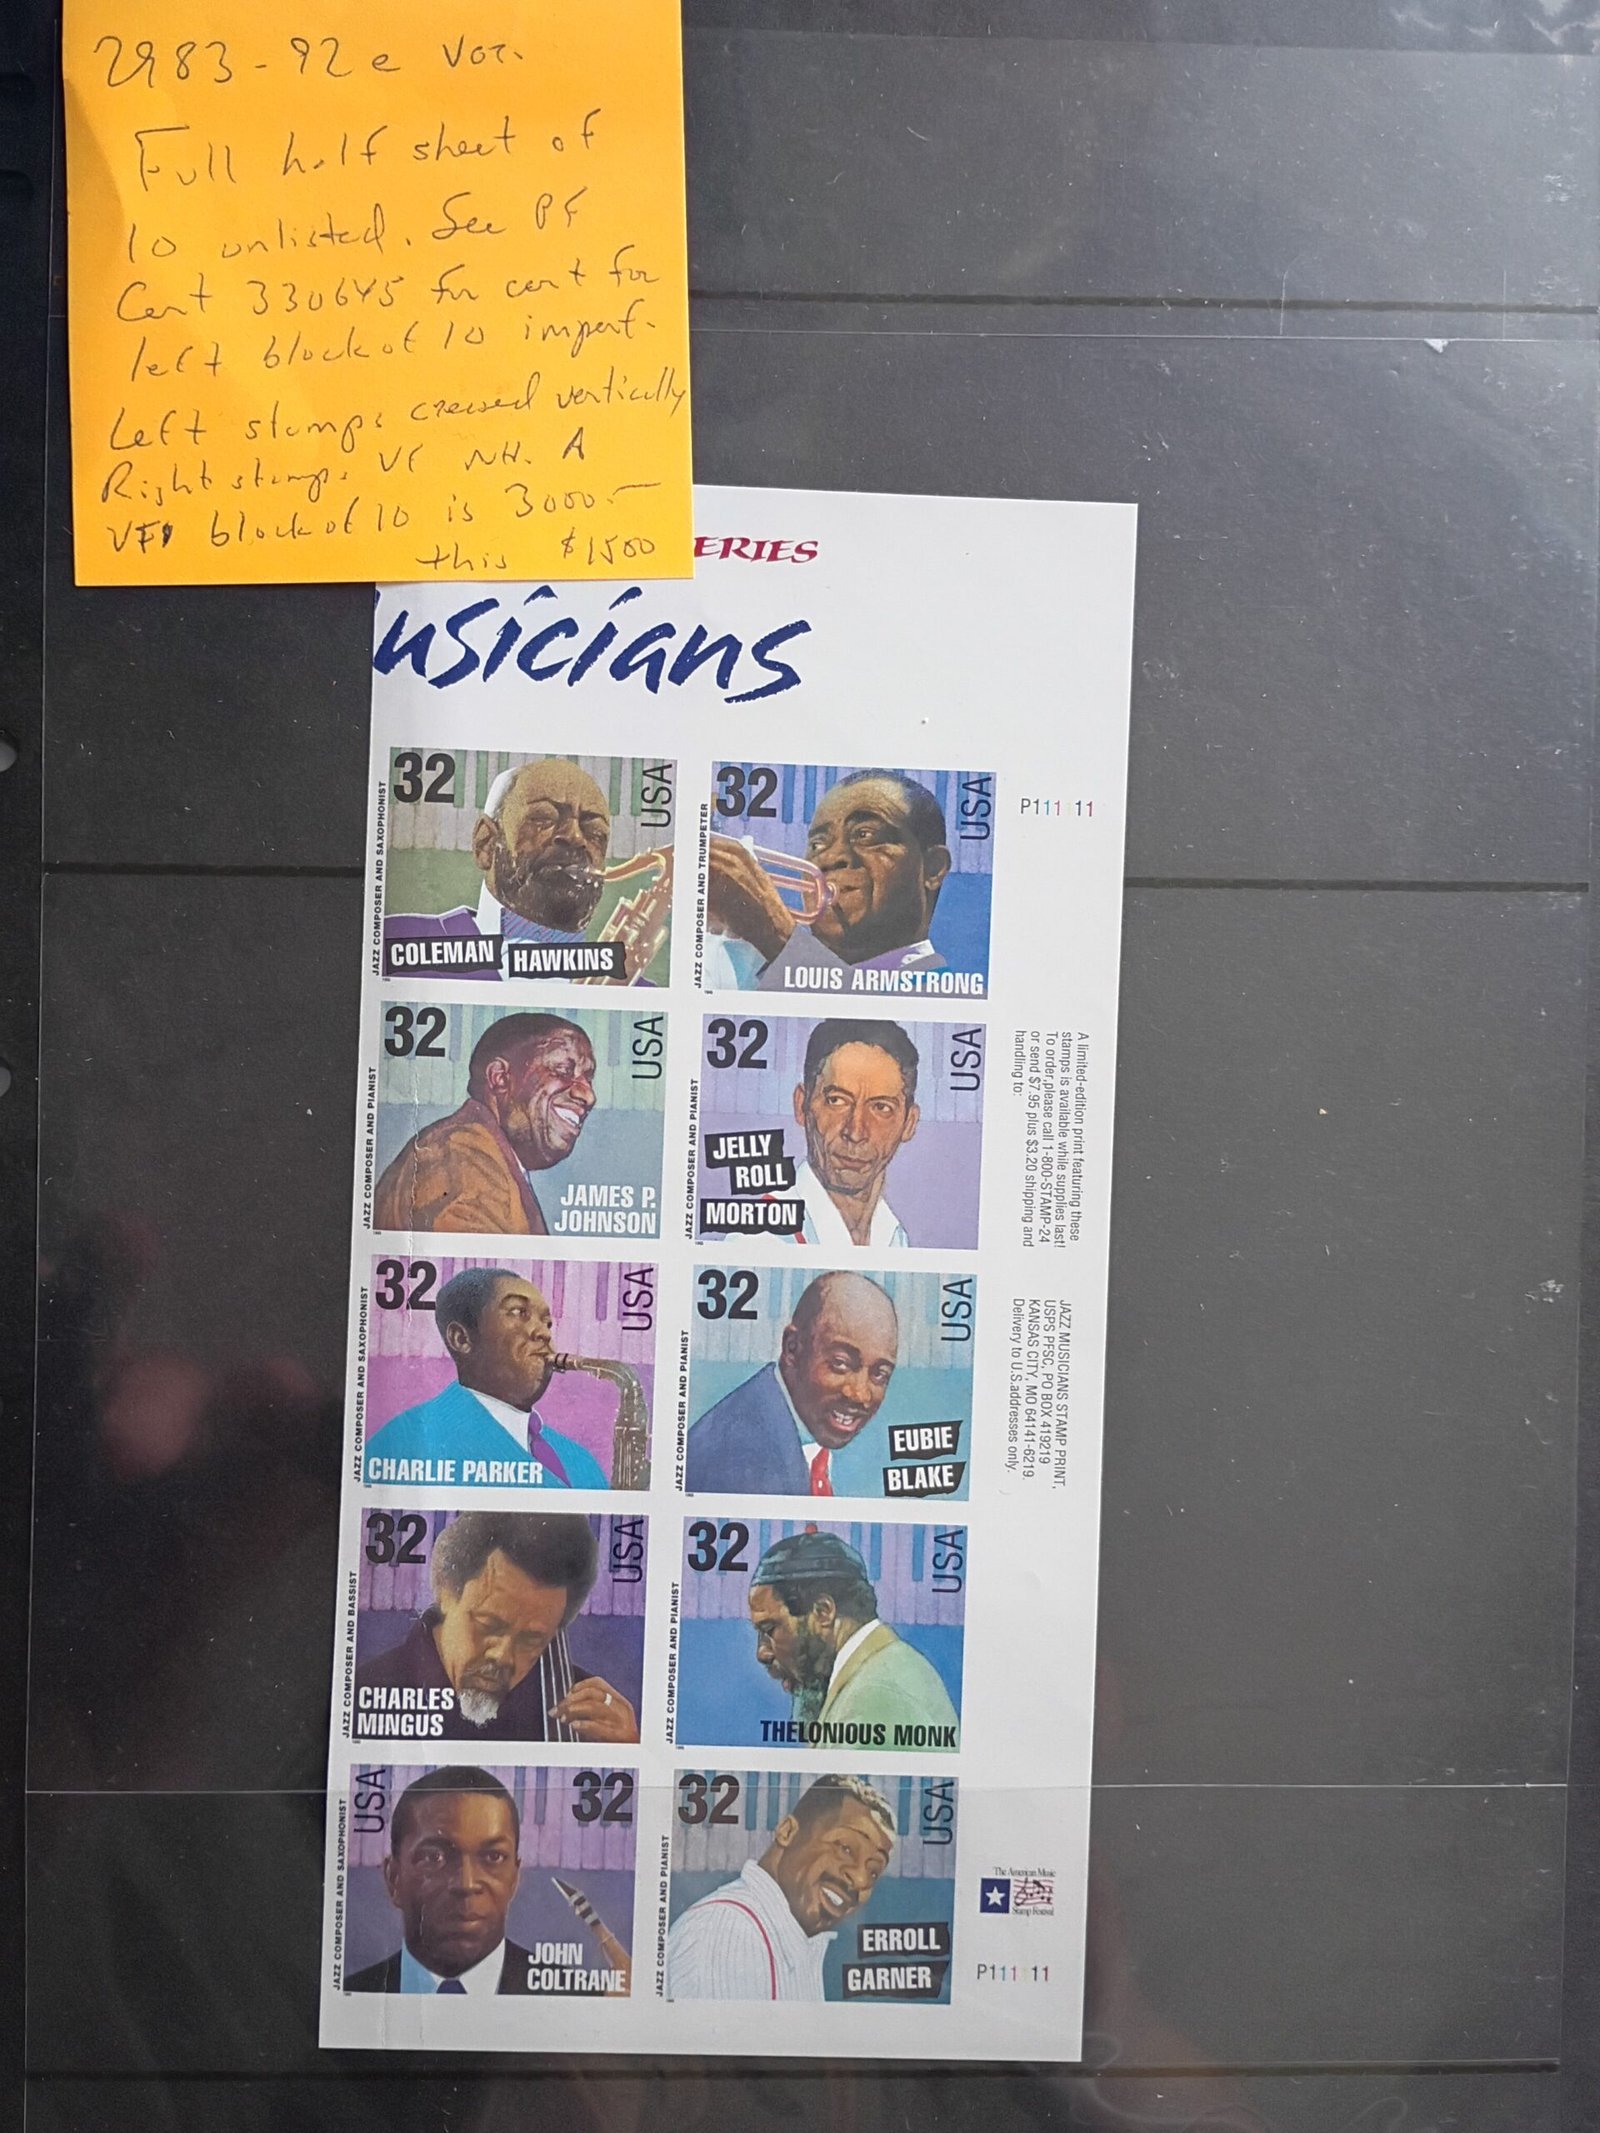 2983-92e Var.
Full half sheet of
10 unlisted. See PF
Cert 330645 for cert for
left block of 10 imperf.
Left stamps creased vertically
Right stamps VF NH. A
VF block of 10 is 3000.-
this $1500
ERIES
usicians
32 USA
JAZZ COMPOSER AND SAXOPHONIST
COLEMAN HAWKINS
32 USA
JAZZ COMPOSER AND TRUMPETER
LOUIS ARMSTRONG
P111 11
32 USA
JAZZ COMPOSER AND PIANIST
JAMES P.
JOHNSON
32 USA
JAZZ COMPOSER AND PIANIST
JELLY
ROLL
MORTON
A limited-edition print featuring these
stamps is available while supplies last!
To order,please call 1-800-STAMP-24
or send $7.95 plus $3.20 shipping and
handling to:
32 USA
JAZZ COMPOSER AND SAXOPHONIST
CHARLIE PARKER
32 USA
JAZZ COMPOSER AND PIANIST
EUBIE
BLAKE
JAZZ MUSICIANS STAMP PRINT,
USPS PFSC, PO BOX 419219
KANSAS CITY, MO 64141-6219.
Delivery to U.S.addresses only.
32 USA
JAZZ COMPOSER AND BASSIST
CHARLES
MINGUS
32 USA
JAZZ COMPOSER AND PIANIST
THELONIOUS MONK
USA 32
JAZZ COMPOSER AND SAXOPHONIST
JOHN
COLTRANE
32 USA
JAZZ COMPOSER AND PIANIST
ERROLL
GARNER
The American Music
Stamp Festival
P111 11